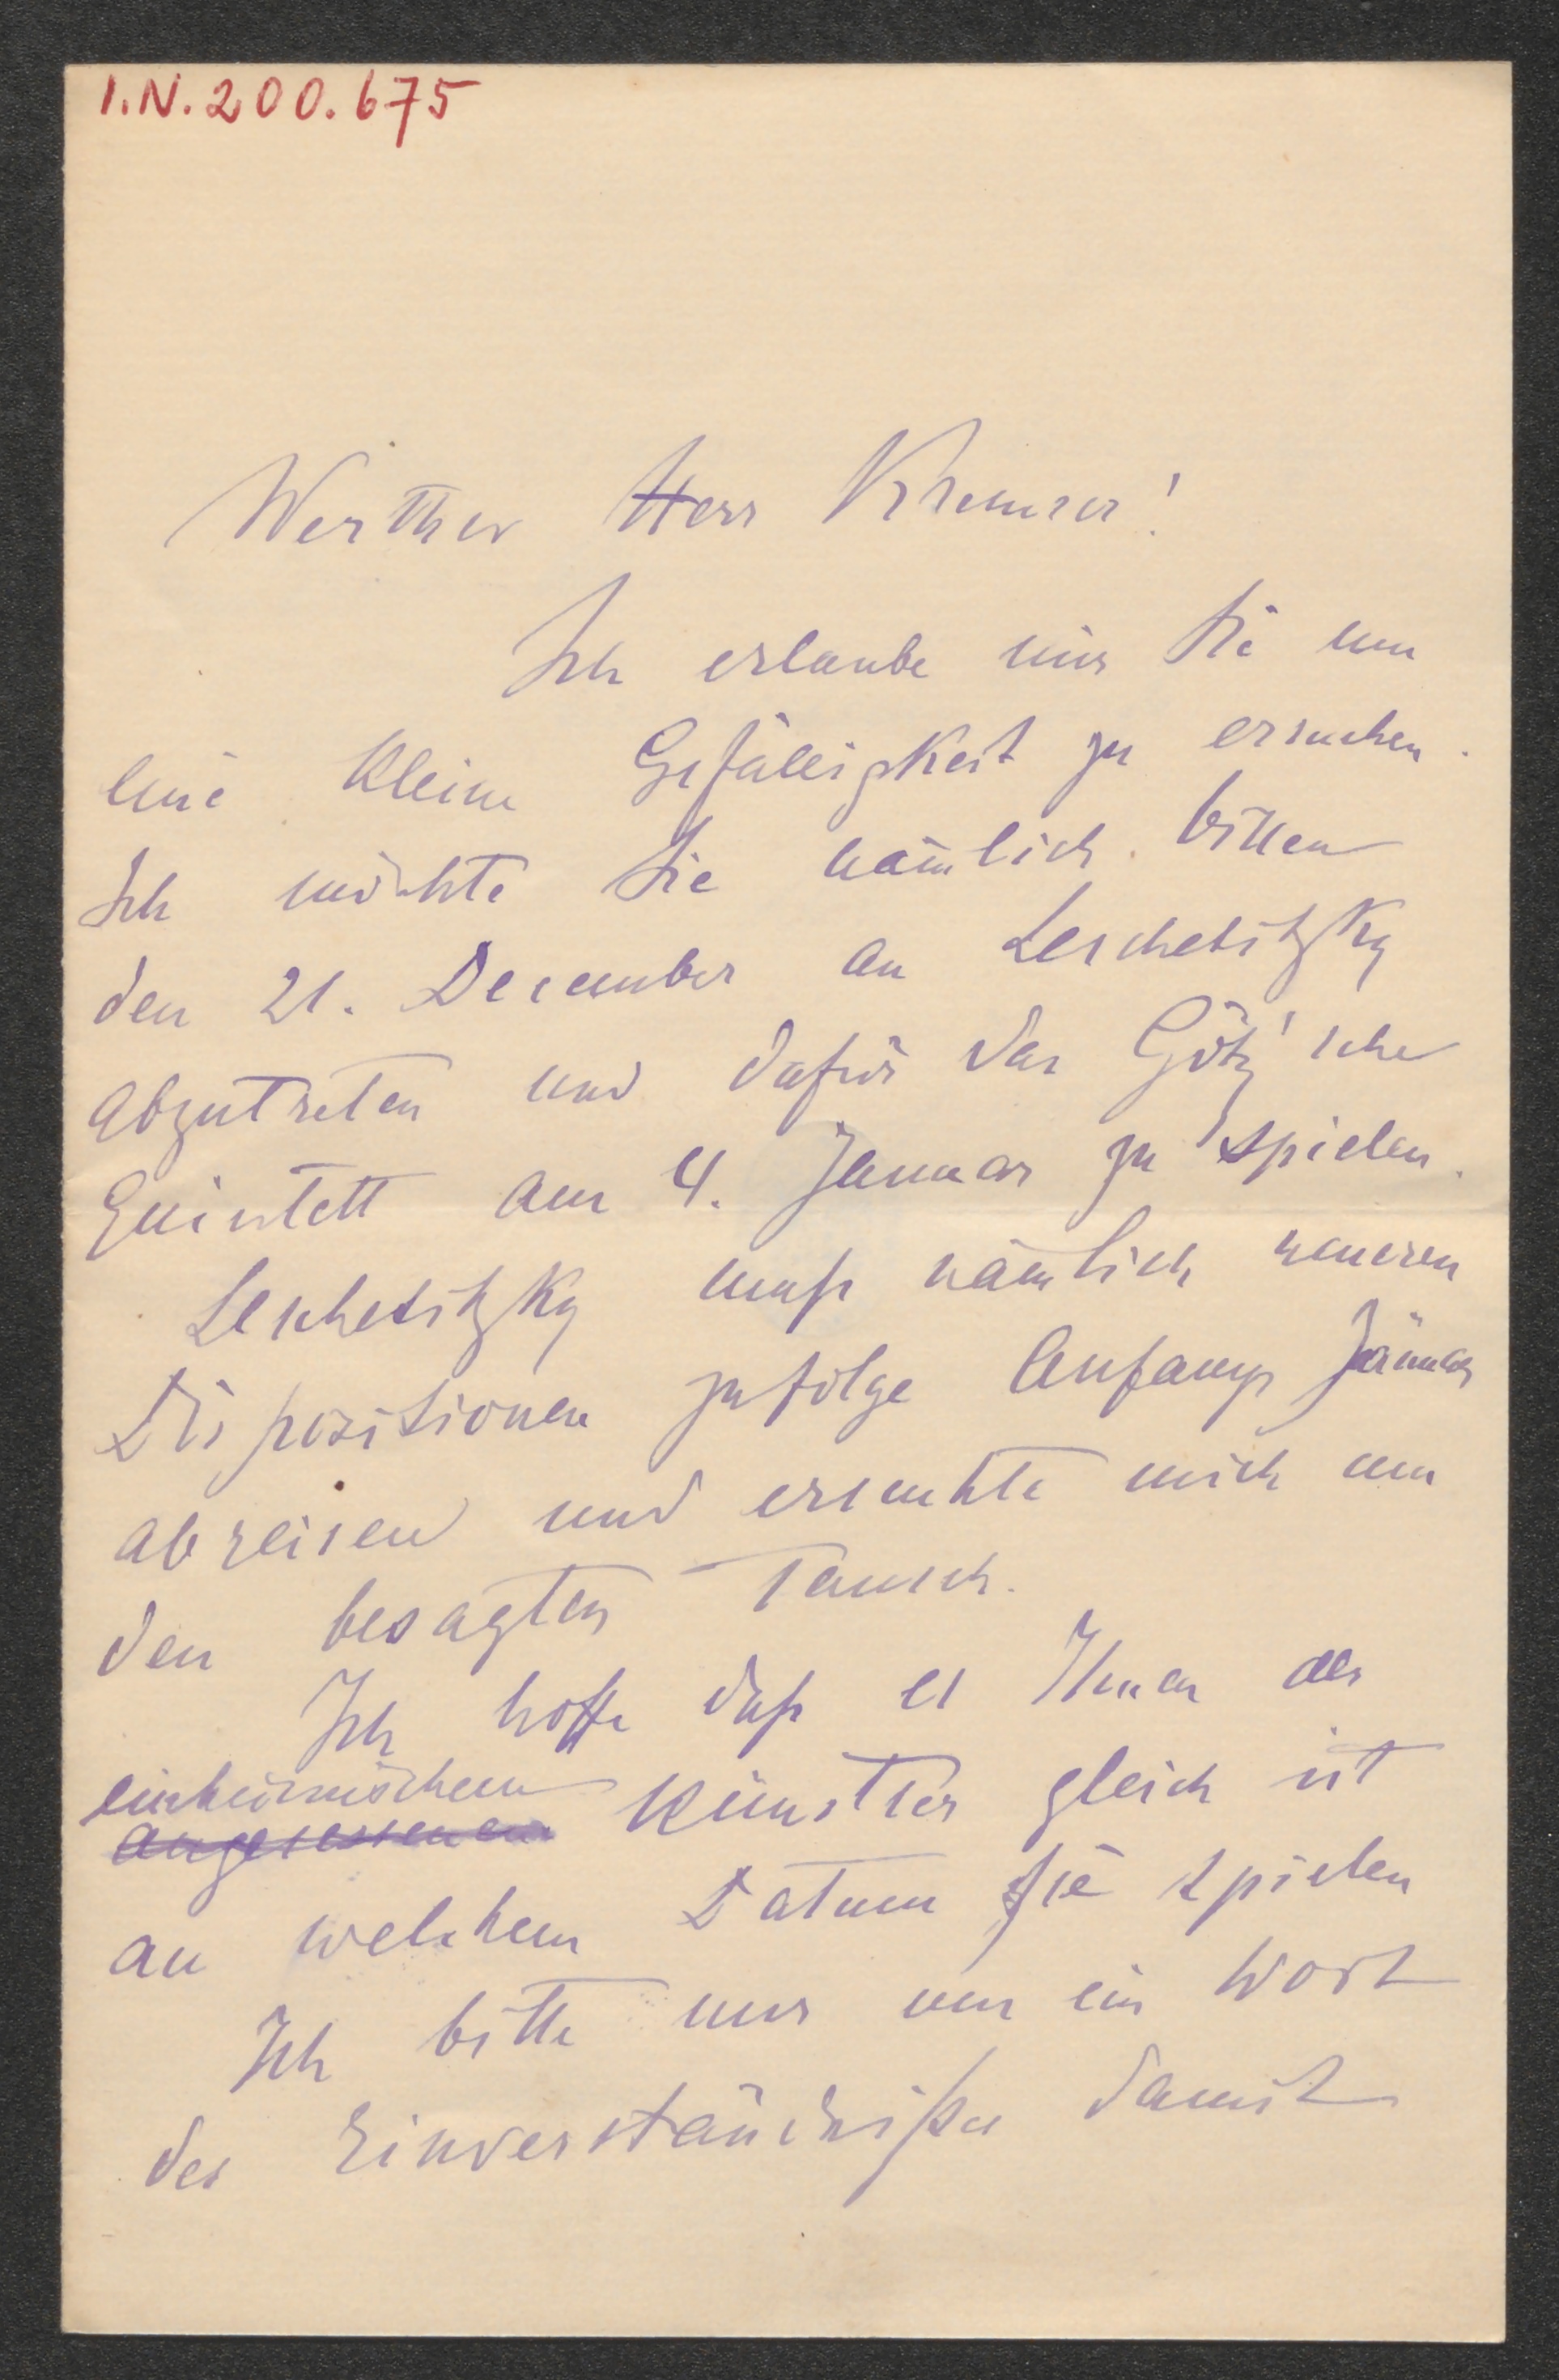 I.N.200.675
Werther Herr Kremser!
Ich erlaube mir Sie um
eine kleine Gefälligkeit zu ersuchen.
Ich möchte Sie nämlich bitten
den 21. December an Leschetitzky
abzutreten und dafür das Götz'sche
Quintett am 4. Januar zu spielen.
Leschetitzky muß nämlich neueren
Dispositionen zufolge Anfangs Jänner
abreisen und ersuchte mich um
den besagten Tausch.
Ich hoffe daß es Ihnen als
einheimischem
angesessenem Künstler gleich ist
an welchem Datum Sie spielen
Ich bitte nur um ein Wort
des Einverständnißes damit